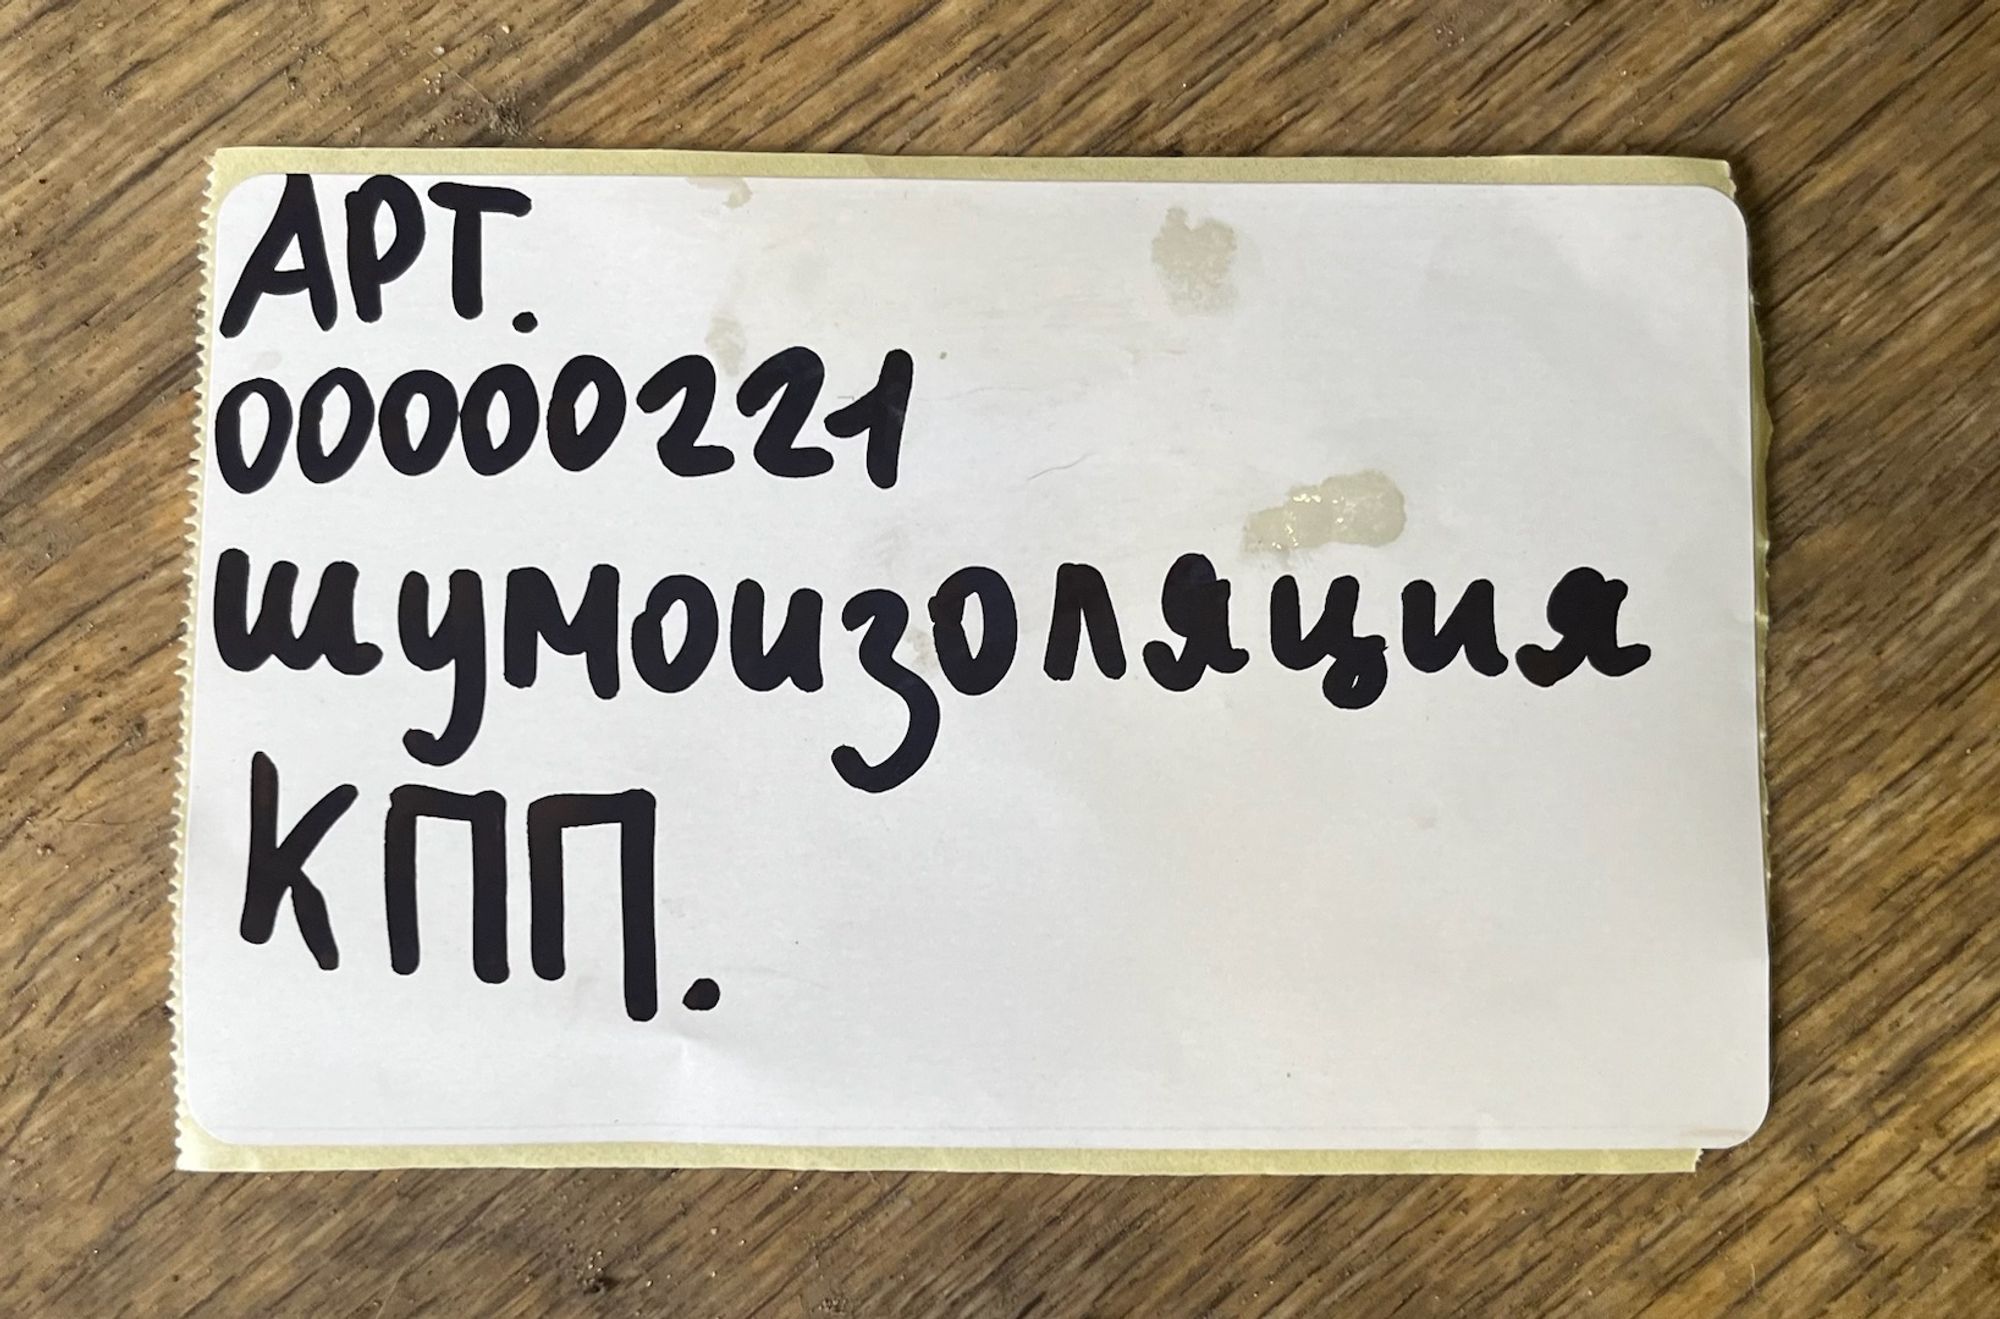 АРТ.
00000221
шумоизоляция
КПП.